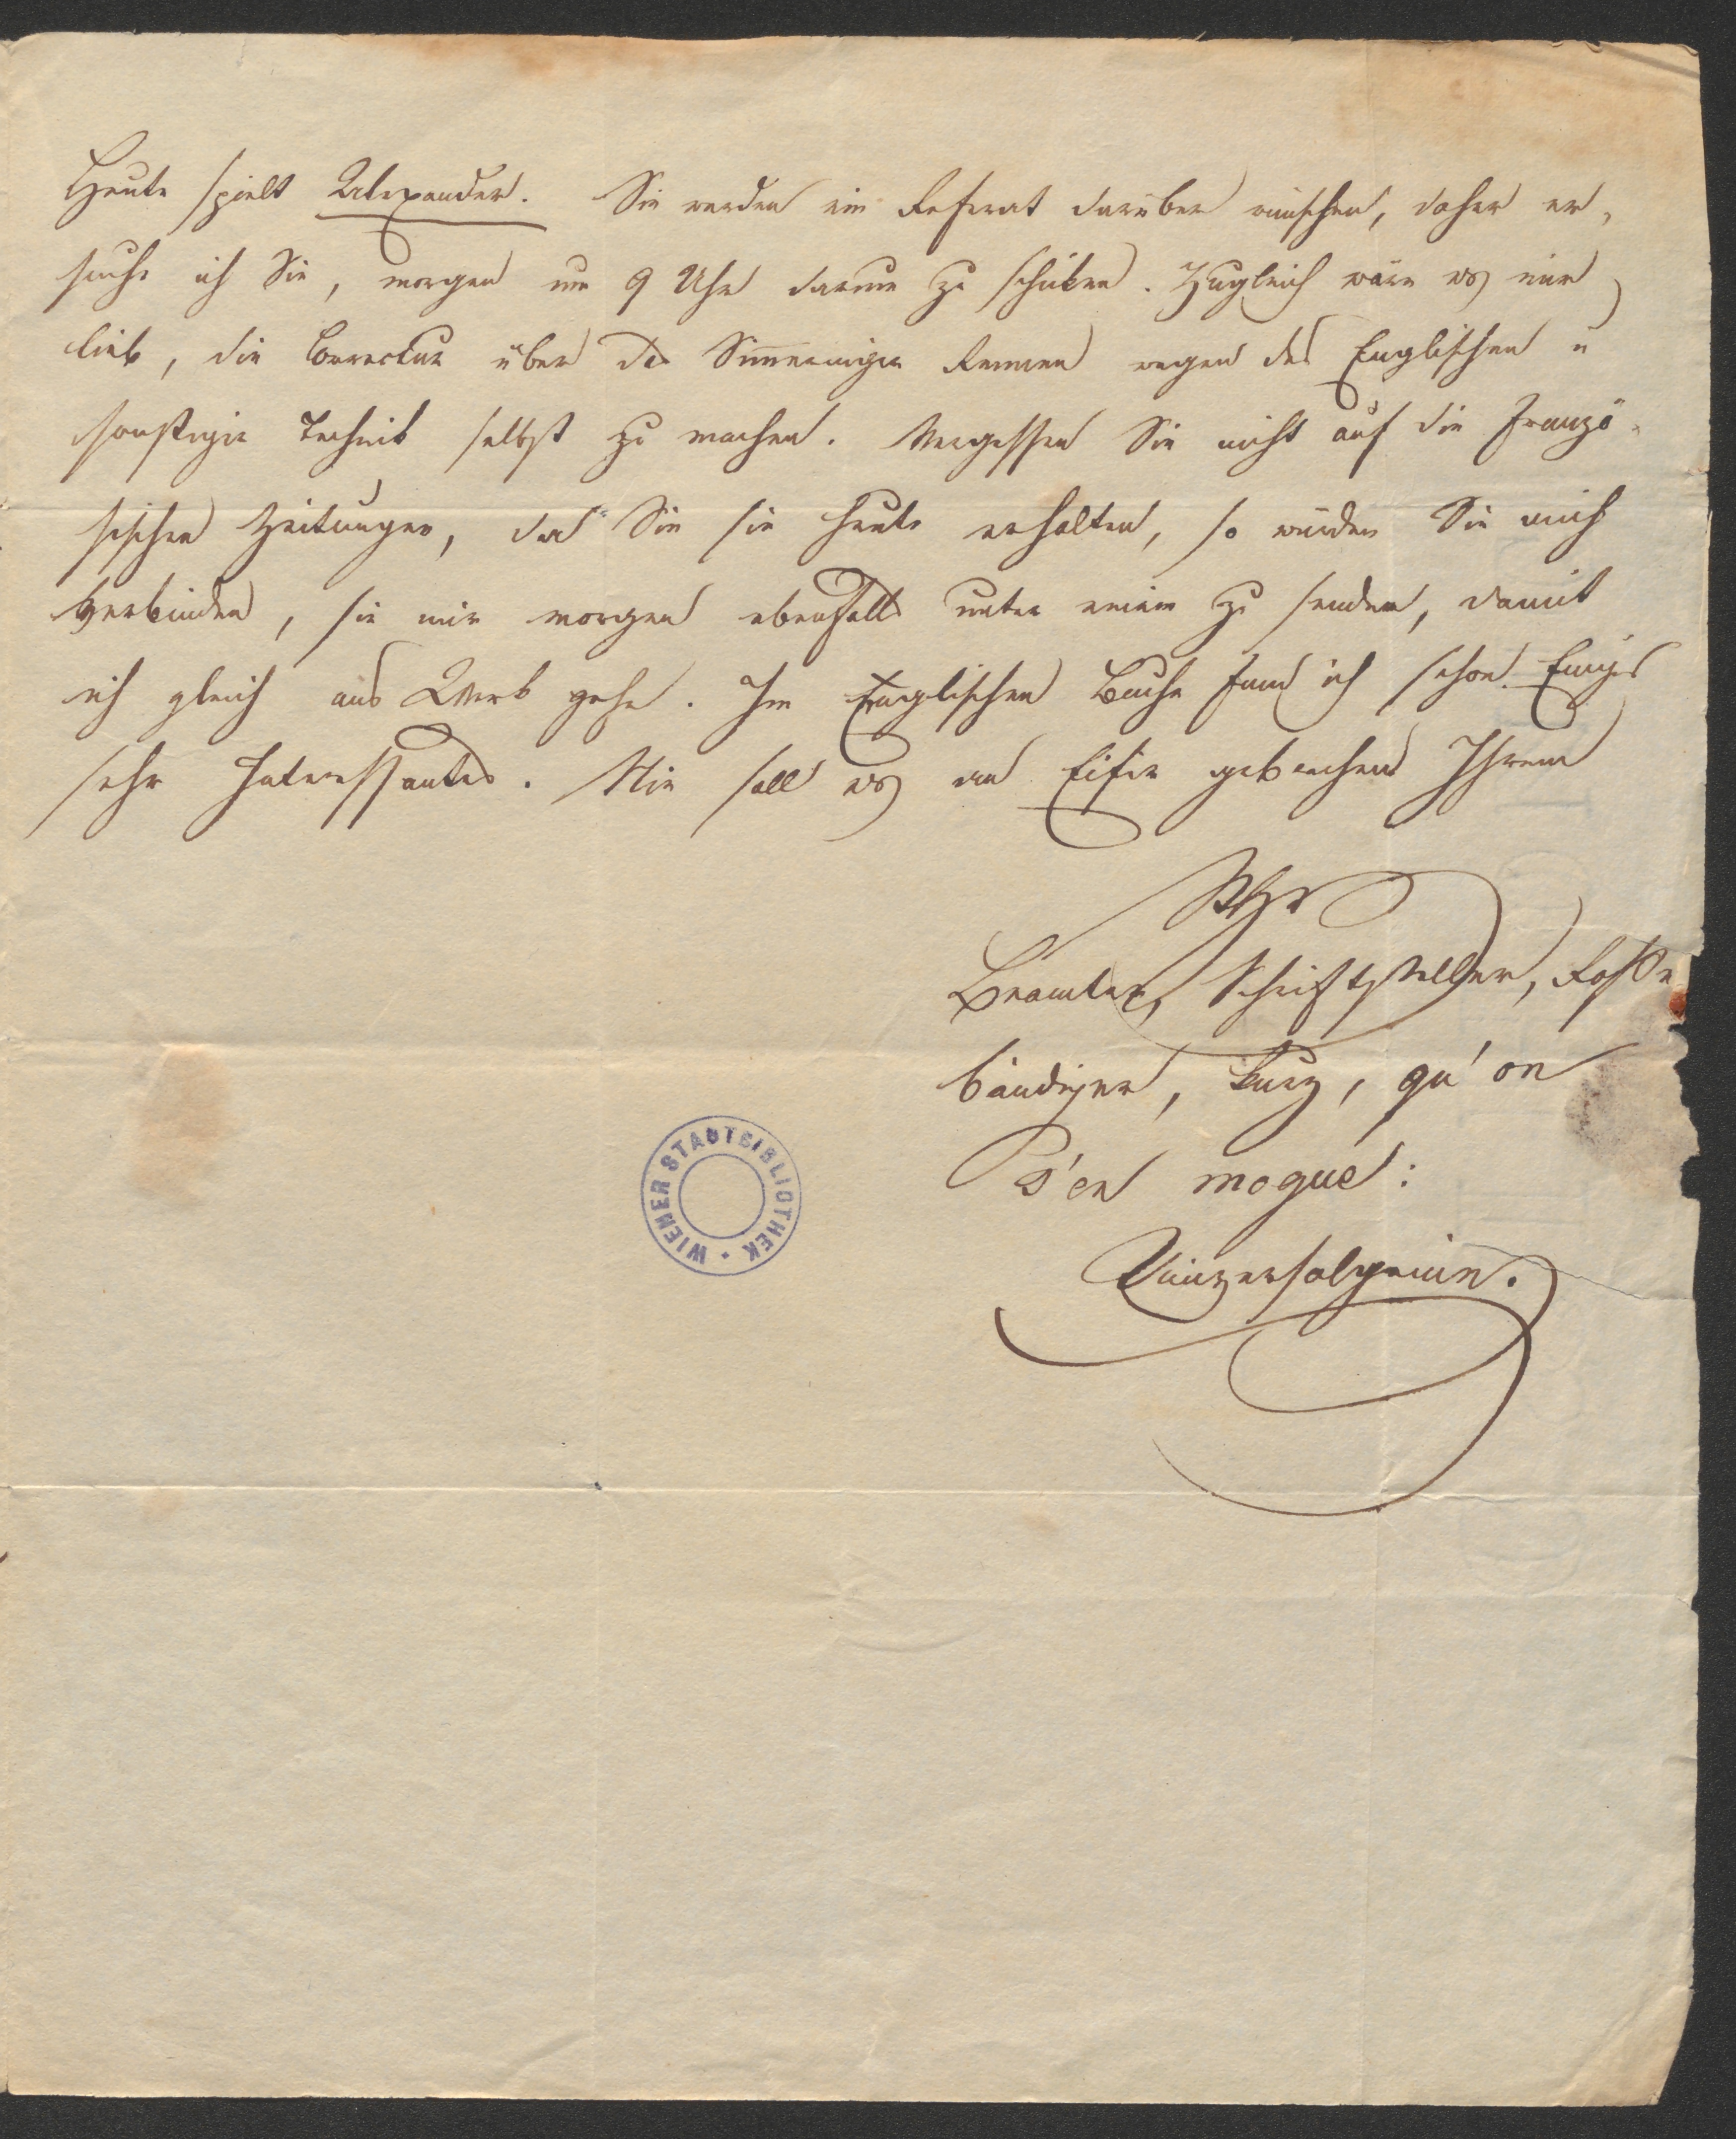 Heute spielt Alexander. Sie werden ein Referat darüber wünschen, daher er-
suche ich Sie, morgen um 9 Uhr darum zu schicken. Zugleich wäre es mir
lieb, die Correctur über das Simmeringer Rennen wegen des Englischen u
sonstiger Technik selbst zu machen. Vergessen Sie nicht auf die Franzö-
sischen Zeitungen, da Sie sie heute erhalten, so würden Sie mich
verbinden, sie mir morgen ebenfalls unter einem zu senden, damit
ich gleich ans Werk gehe. Im Englischen Buche fand ich schon Einiges
sehr Interessantes. Nie soll es an Eifer gebrechen Ihrem
Beamter, Schriftsteller, Rosse
bändiger, kurz, qu'on
s'en moque:
Universalgenie.
WIENER STADTBIBLIOTHEK